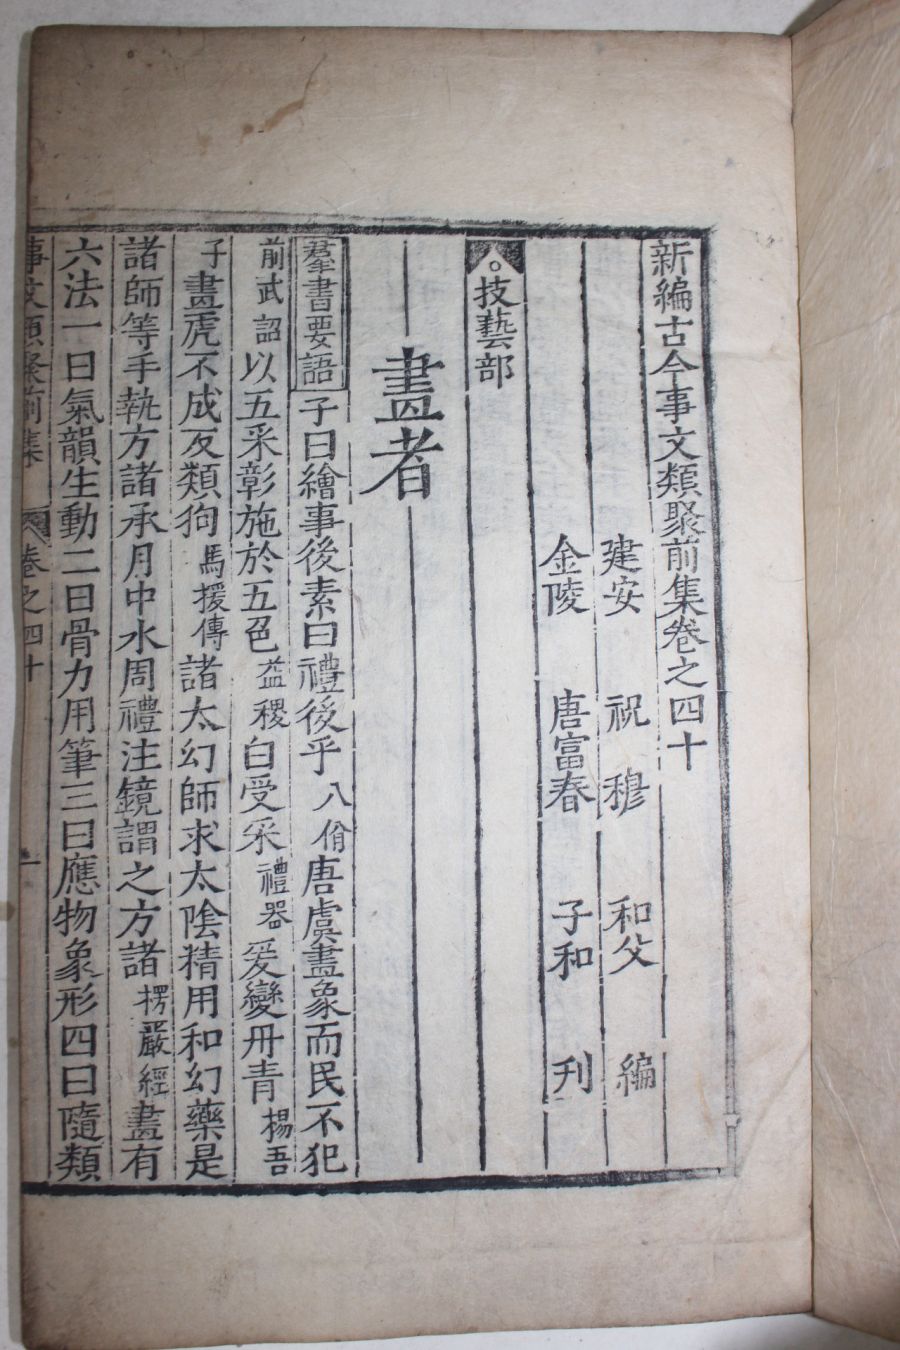 新編古今事文類聚前集卷之四十
建安 祝穆 和父 編
金陵 唐富春 子和 刋
技藝部
畫者
羣書要語 子曰繪事後素曰禮後乎 八佾 唐虞畫象而民不犯
前武詔 以五采彰施於五色 益稷 白受采 禮器 爰變丹青 楊吾
子 畫虎不成反類狗 馬援傳 諸太幻師求太陰精用和幻藥是
諸師等手執方諸承月中水周禮注鏡謂之方諸 楞嚴經 畫有
六法一曰氣韻生動二曰骨力用筆三曰應物象形四曰隨類
事文類聚前集 卷之四十 一